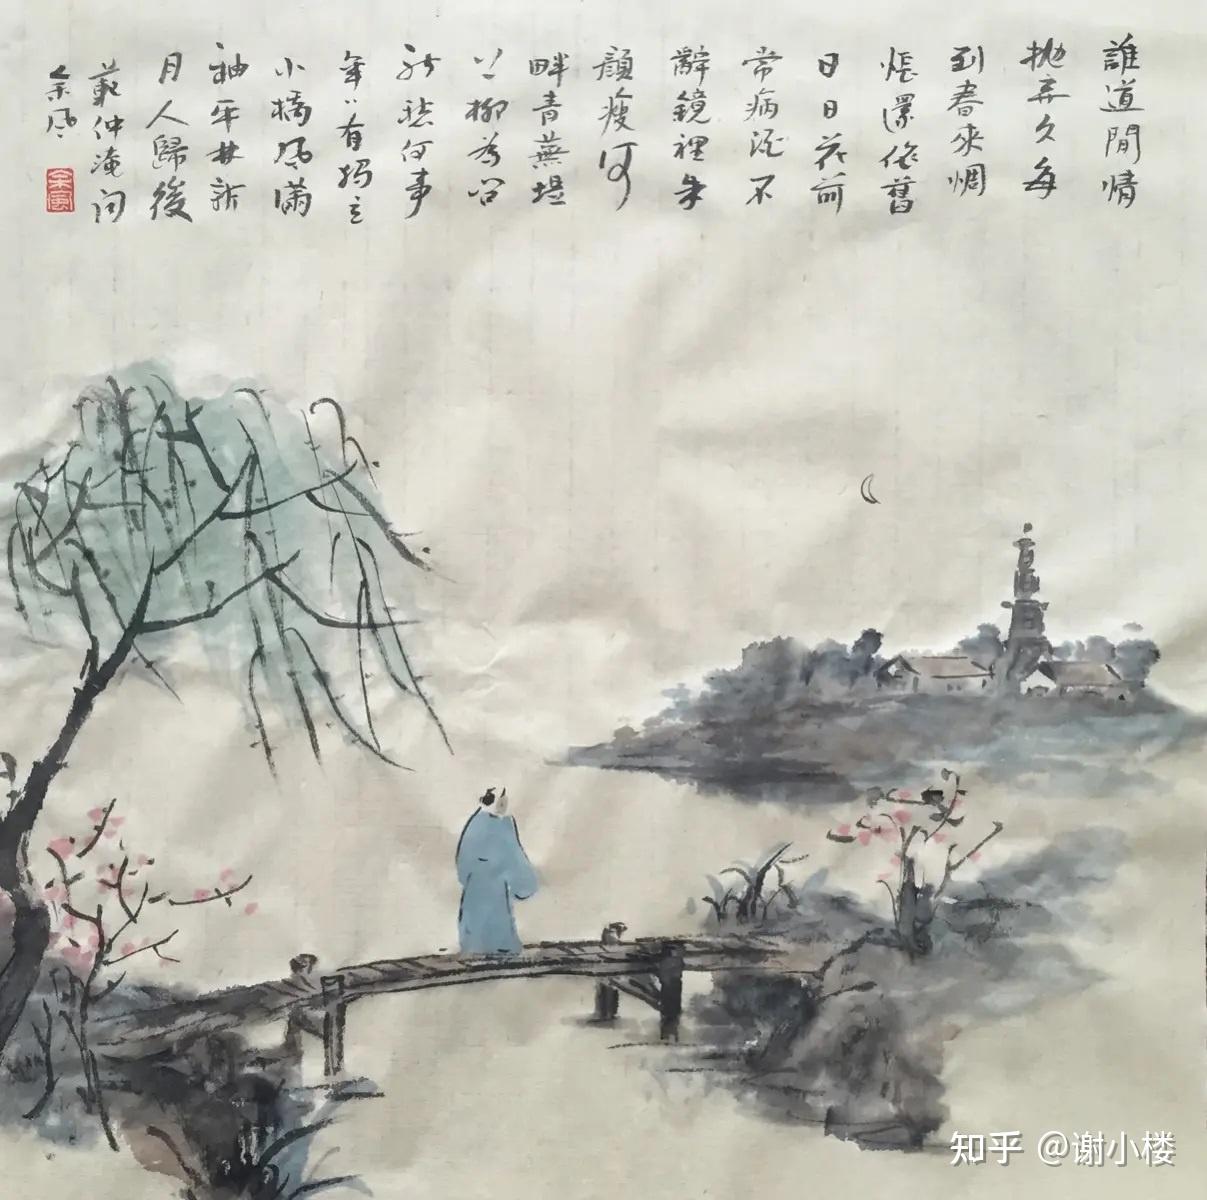 誰道閒情
抛弃久每
到春來惆
悵還依舊
日日花前
常病酒不
辭鏡裡朱
顏瘦河
畔青蕪堤
上柳为问
新愁何事
年〻有獨立
小橋风滿
袖平林新
月人歸後
範仲淹词
余风
余風
知乎 @谢小楼